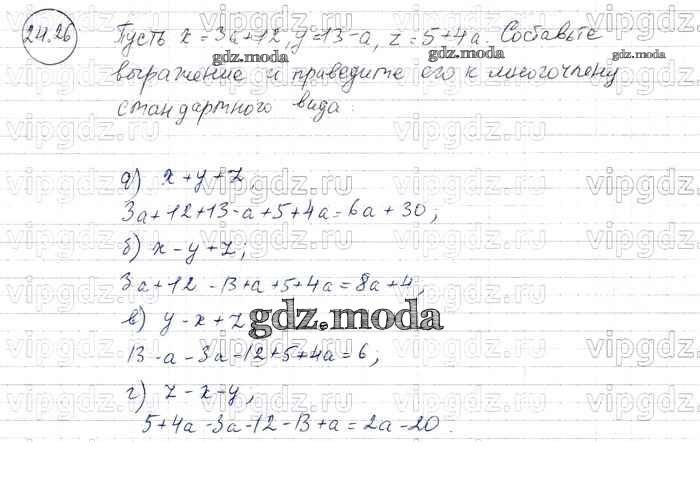 24.26
Пусть x = 3a+12, y=13-a, z = 5+4a. Составьте
gdz.moda gdz.moda
выражение и приведите его к многочлену
стандартного вида:
а) x+y+z,
3a+12+13-a+5+4a=6a+30;
б) x-y+z;
3a+12-13+a+5+4a=8a+4,
в) y-x+z
gdz.moda
13-a-3a-12+5+4a=6;
г) z-x-y,
5+4a-3a-12-13+a=2a-20.
vipgdz.ru